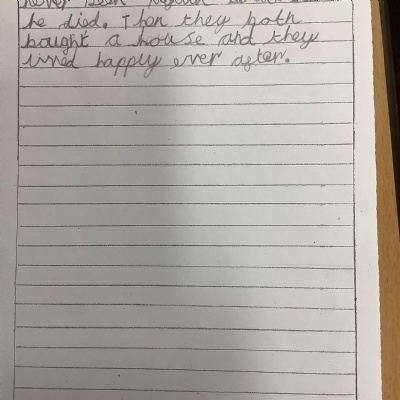 never been together
he died. Then they both
bought a house and they
lived happly ever after.